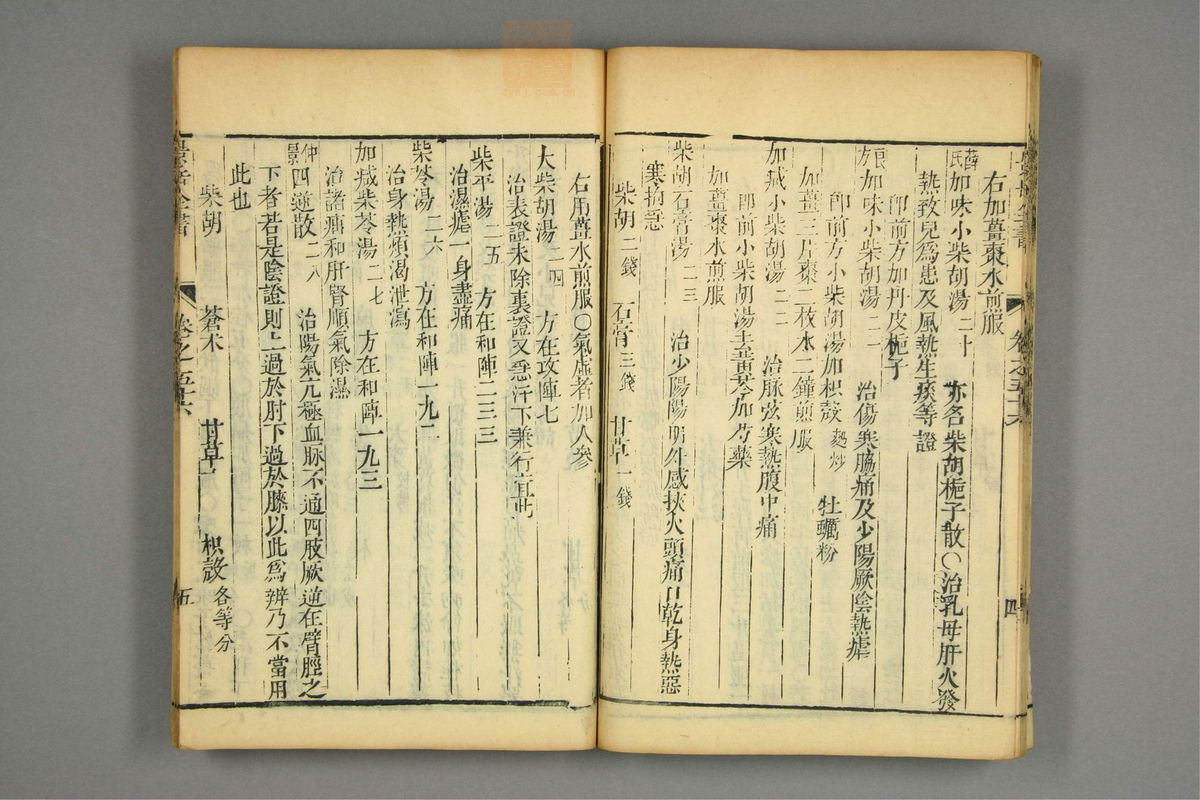 右加薑棗水煎服
薛氏加味小柴胡湯二十　亦名柴胡梔子散○治乳母肝火發
熱致兒為患及風熱生痰等證
卽前方加丹皮梔子
良方加味小柴胡湯二一　治傷寒脇痛及少陽厥陰熱瘧
卽前方小柴胡湯加枳殼麩炒　牡蠣粉
加薑三片棗二枚水二鐘煎服
加減小柴胡湯二二　治脉弦寒熱腹中痛
卽前小柴胡湯去黃芩加芍藥
加薑棗水煎服
柴胡石膏湯二三　治少陽陽明外感挾火頭痛口乾身熱惡
寒拘急
柴胡二錢　石膏三錢　甘草一錢
四
右用薑水煎服○氣虛者加人參
大柴胡湯二四　方在攻陣七
治表證未除裏證又急汗下兼行宜此
柴平湯二五　方在和陣二三三
治濕瘧一身盡痛
柴苓湯二六　方在和陣一九二
治身熱煩渴泄瀉
加減柴苓湯二七　方在和陣一九三
治諸疝和肝腎順氣除濕
仲景四逆散二八　治陽氣亢極血脉不通四肢厥逆在臂脛之
下者若是陰證則上過於肘下過於膝以此為辨乃不當用
此也
柴胡　蒼朮　甘草　枳殼各等分
景岳全書　卷之五十六　五